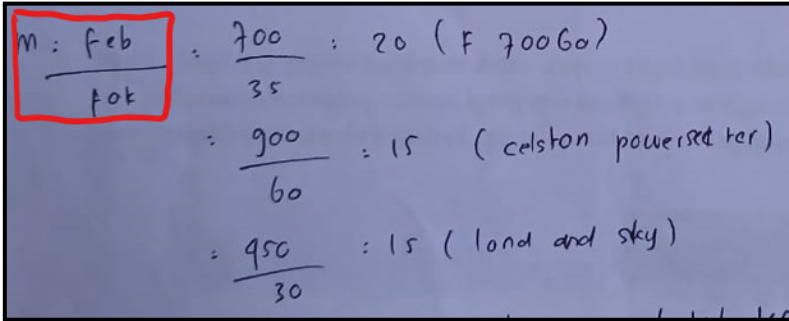 m : feb / fok : 700 / 35 : 20 (F 70060)
: 900 / 60 : 15 (celston powerseeker)
: 450 / 30 : 15 (land and sky)